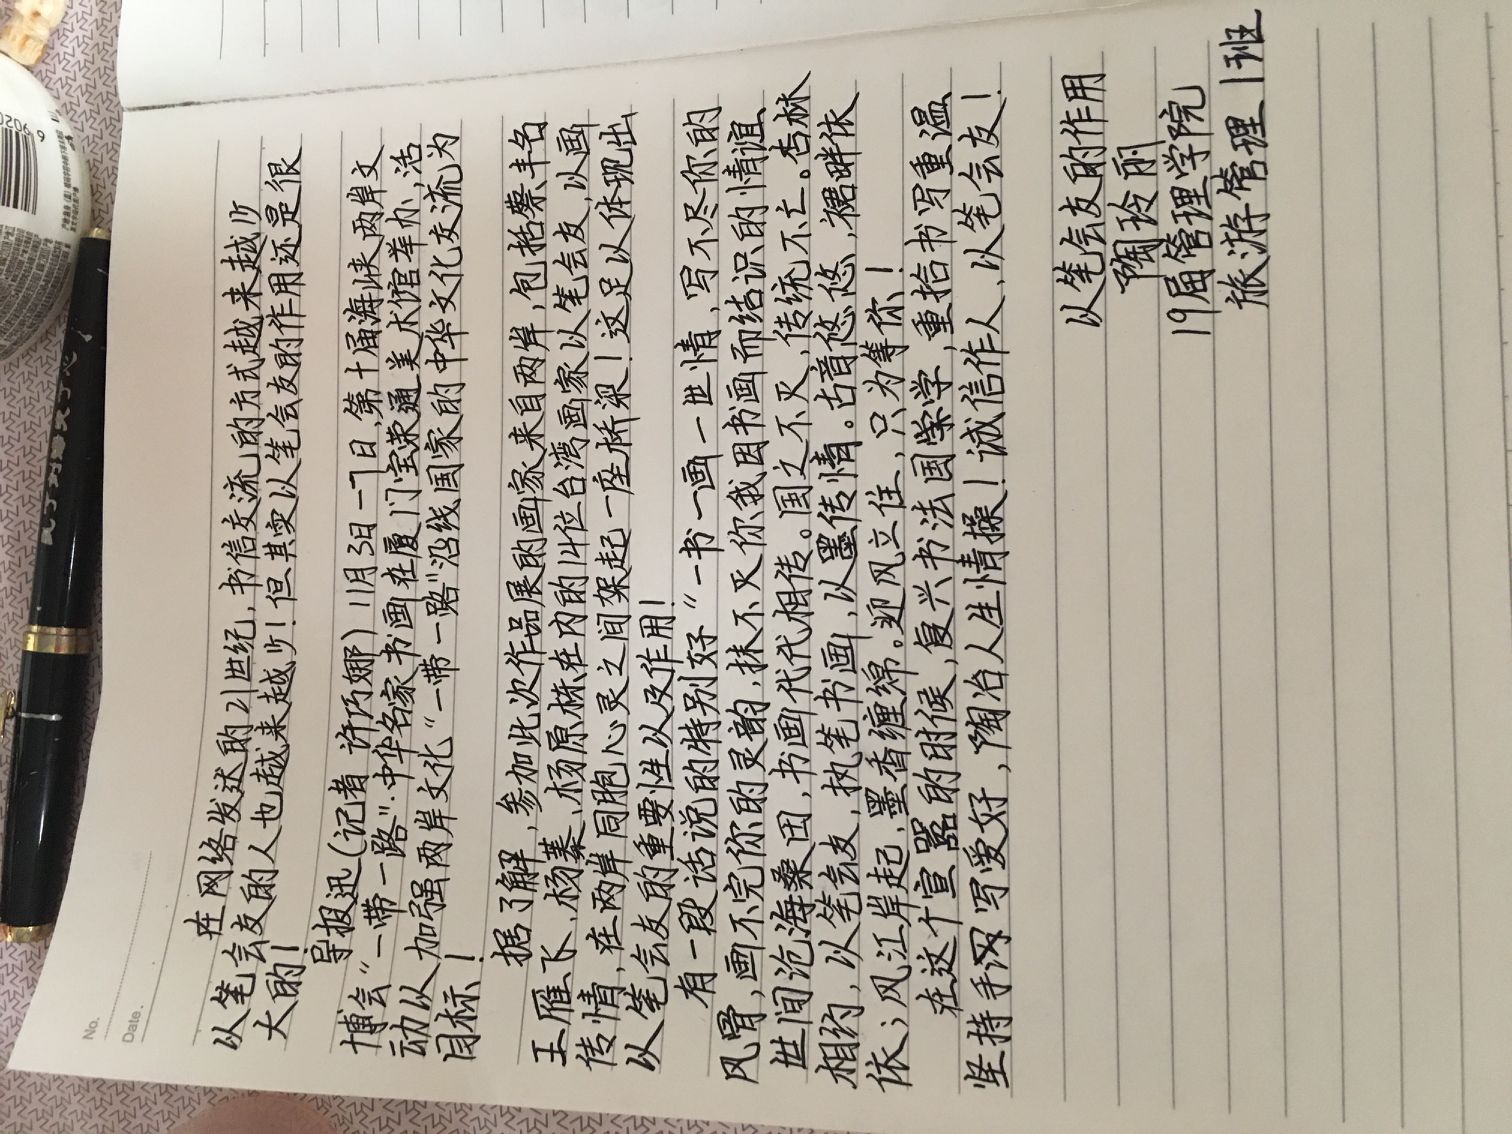 No.
Date.
在网络发达的21世纪，书信交流的方式越来越少
以笔会友的人也越来越少！但其实以笔会友的作用还是很
大的！
导报迅（记者 许乃娜）11月3日一7日，第十届海峡两岸文
博会“一带一路”·中华名家书画在厦门宝荣通美术馆举办，活
动以加强两岸文化“一带一路”沿线国家的中华文化交流为
目标！
据了解，参加此次作品展的画家来自两岸，包括蔡丰名
王雁飞、杨蓁、杨原栋在内的14位台湾画家以笔会友，以画
传情，在两岸同胞心灵之间架起一座桥梁！这足以体现出
以笔会友的重要性以及作用！
有一段话说的特别好“一书一画一世情，写不尽你的
风骨，画不完你的灵韵，抹不灭你我因书画而结识的情谊
世间沧海桑田，书画代代相传。国之不灭，传统不亡。杏林
相约，以笔会友，执笔书画，以墨传情。古音悠悠，裙畔依
依；风江岸起，墨香缠绵。迎风立住，只为等你！
在这个宣嚣的时候，复兴书法国学学，重拾书写重温
坚持手写爱好，陶冶人生情操！诚信作人，以笔会友！
以笔会友的作用
陶玲丽
19届管理学院
旅游管理1班